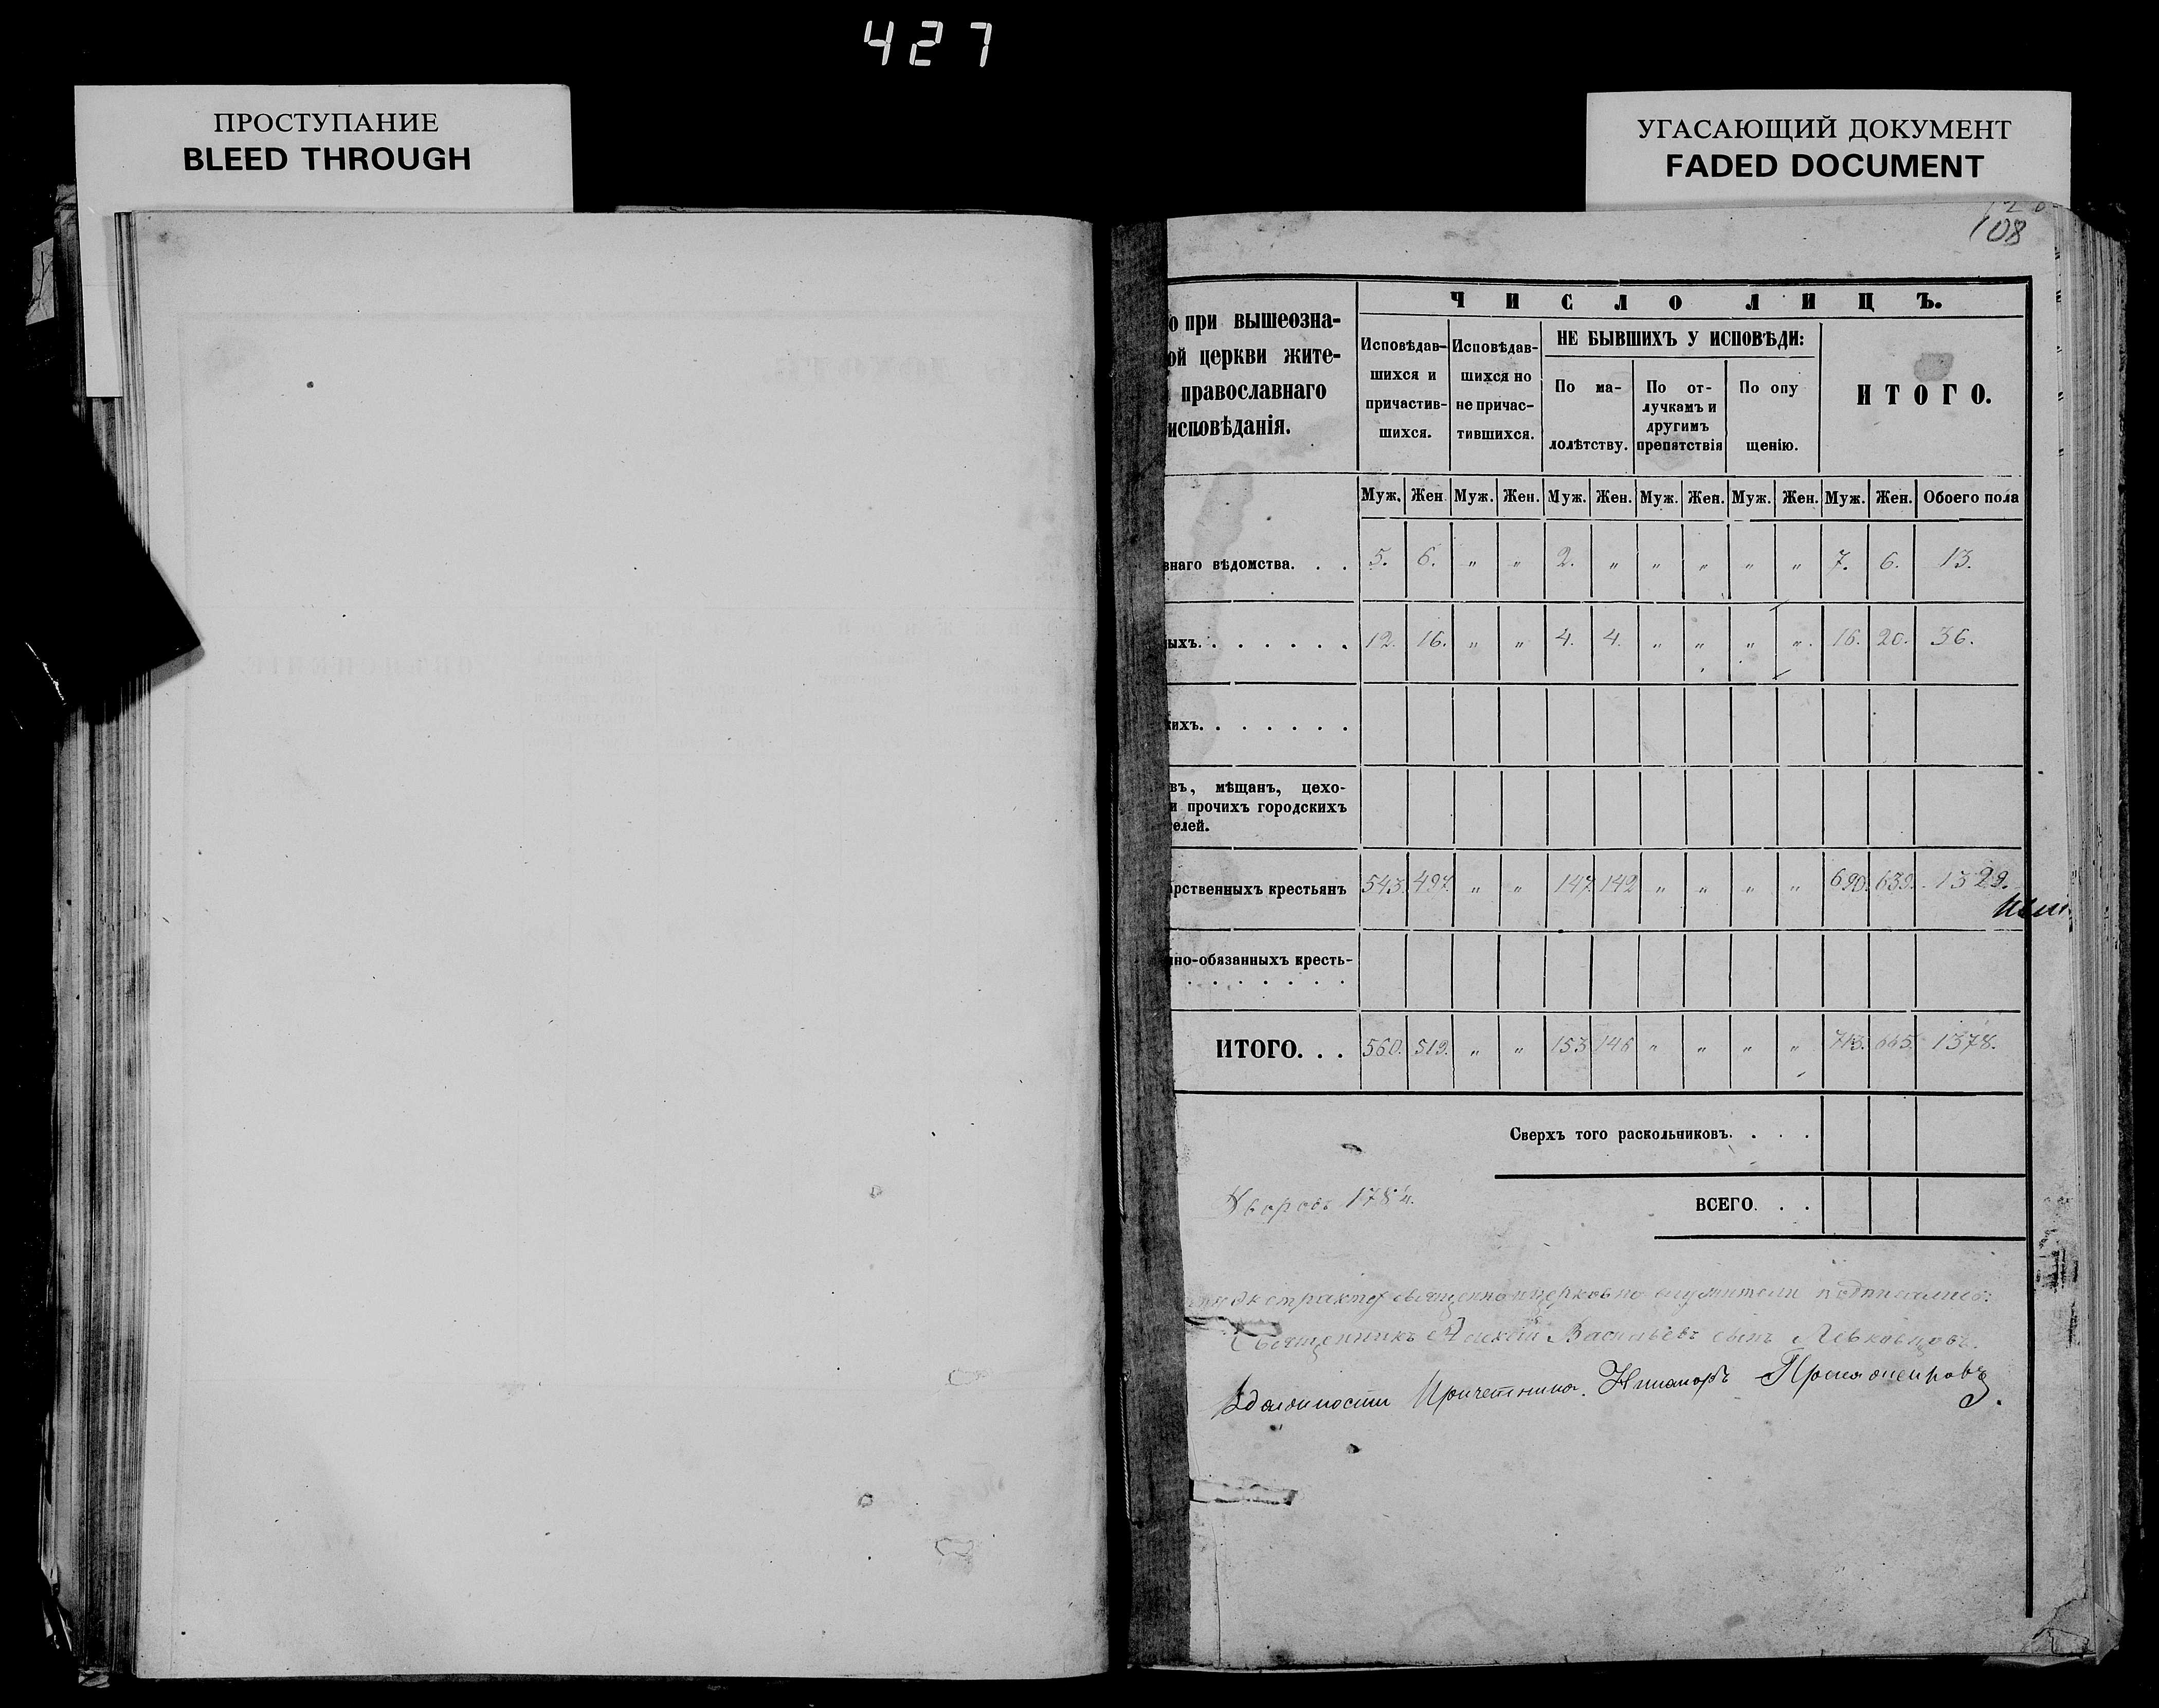 427
ПРОСТУПАНИЕ
BLEED THROUGH
УГАСАЮЩИЙ ДОКУМЕНТ
FADED DOCUMENT
108
о при вышеозна-
ой церкви жите-
православнаго
исповѣданія.
ЧИСЛО ЛИЦЪ.
Исповѣдав-
шихся и
причастив-
шихся.
Исповѣдав-
шихся но
не причас-
тившихся.
НЕ БЫВШИХЪ У ИСПОВѢДИ:
По ма-
лолѣтству.
По от-
лучкамъ и
другимъ
препятствія
По опу
щенію.
ИТОГО.
Муж. Жен. Муж. Жен. Муж. Жен. Муж. Жен. Муж. Жен. Муж. Жен. Обоего пола
внаго вѣдомства. . . 5. 6. " " 2. " " " " " 7. 6. 13.
ыхъ. . . . . . . 12. 16. " " 4. 4. " " " " 16. 20. 36.
кихъ. . . . . . .
въ, мѣщанъ, цехо-
и прочихъ городскихъ
елей.
арственныхъ крестьянъ 543. 497. " " 147. 142 " " " " 690. 639. 1329.
нно-обязанныхъ кресть-
. . . . . . .
ИТОГО. . . 560. 519. " " 153 146 " " " " 713. 665. 1378.
Сверхъ того раскольниковъ. . . .
Дворовъ
ВСЕГО. . .
экстракту священноицерковно служители подписались:
Священникъ Алексій Васильевъ сынъ
Вдолжности Причетника. Никаноръ